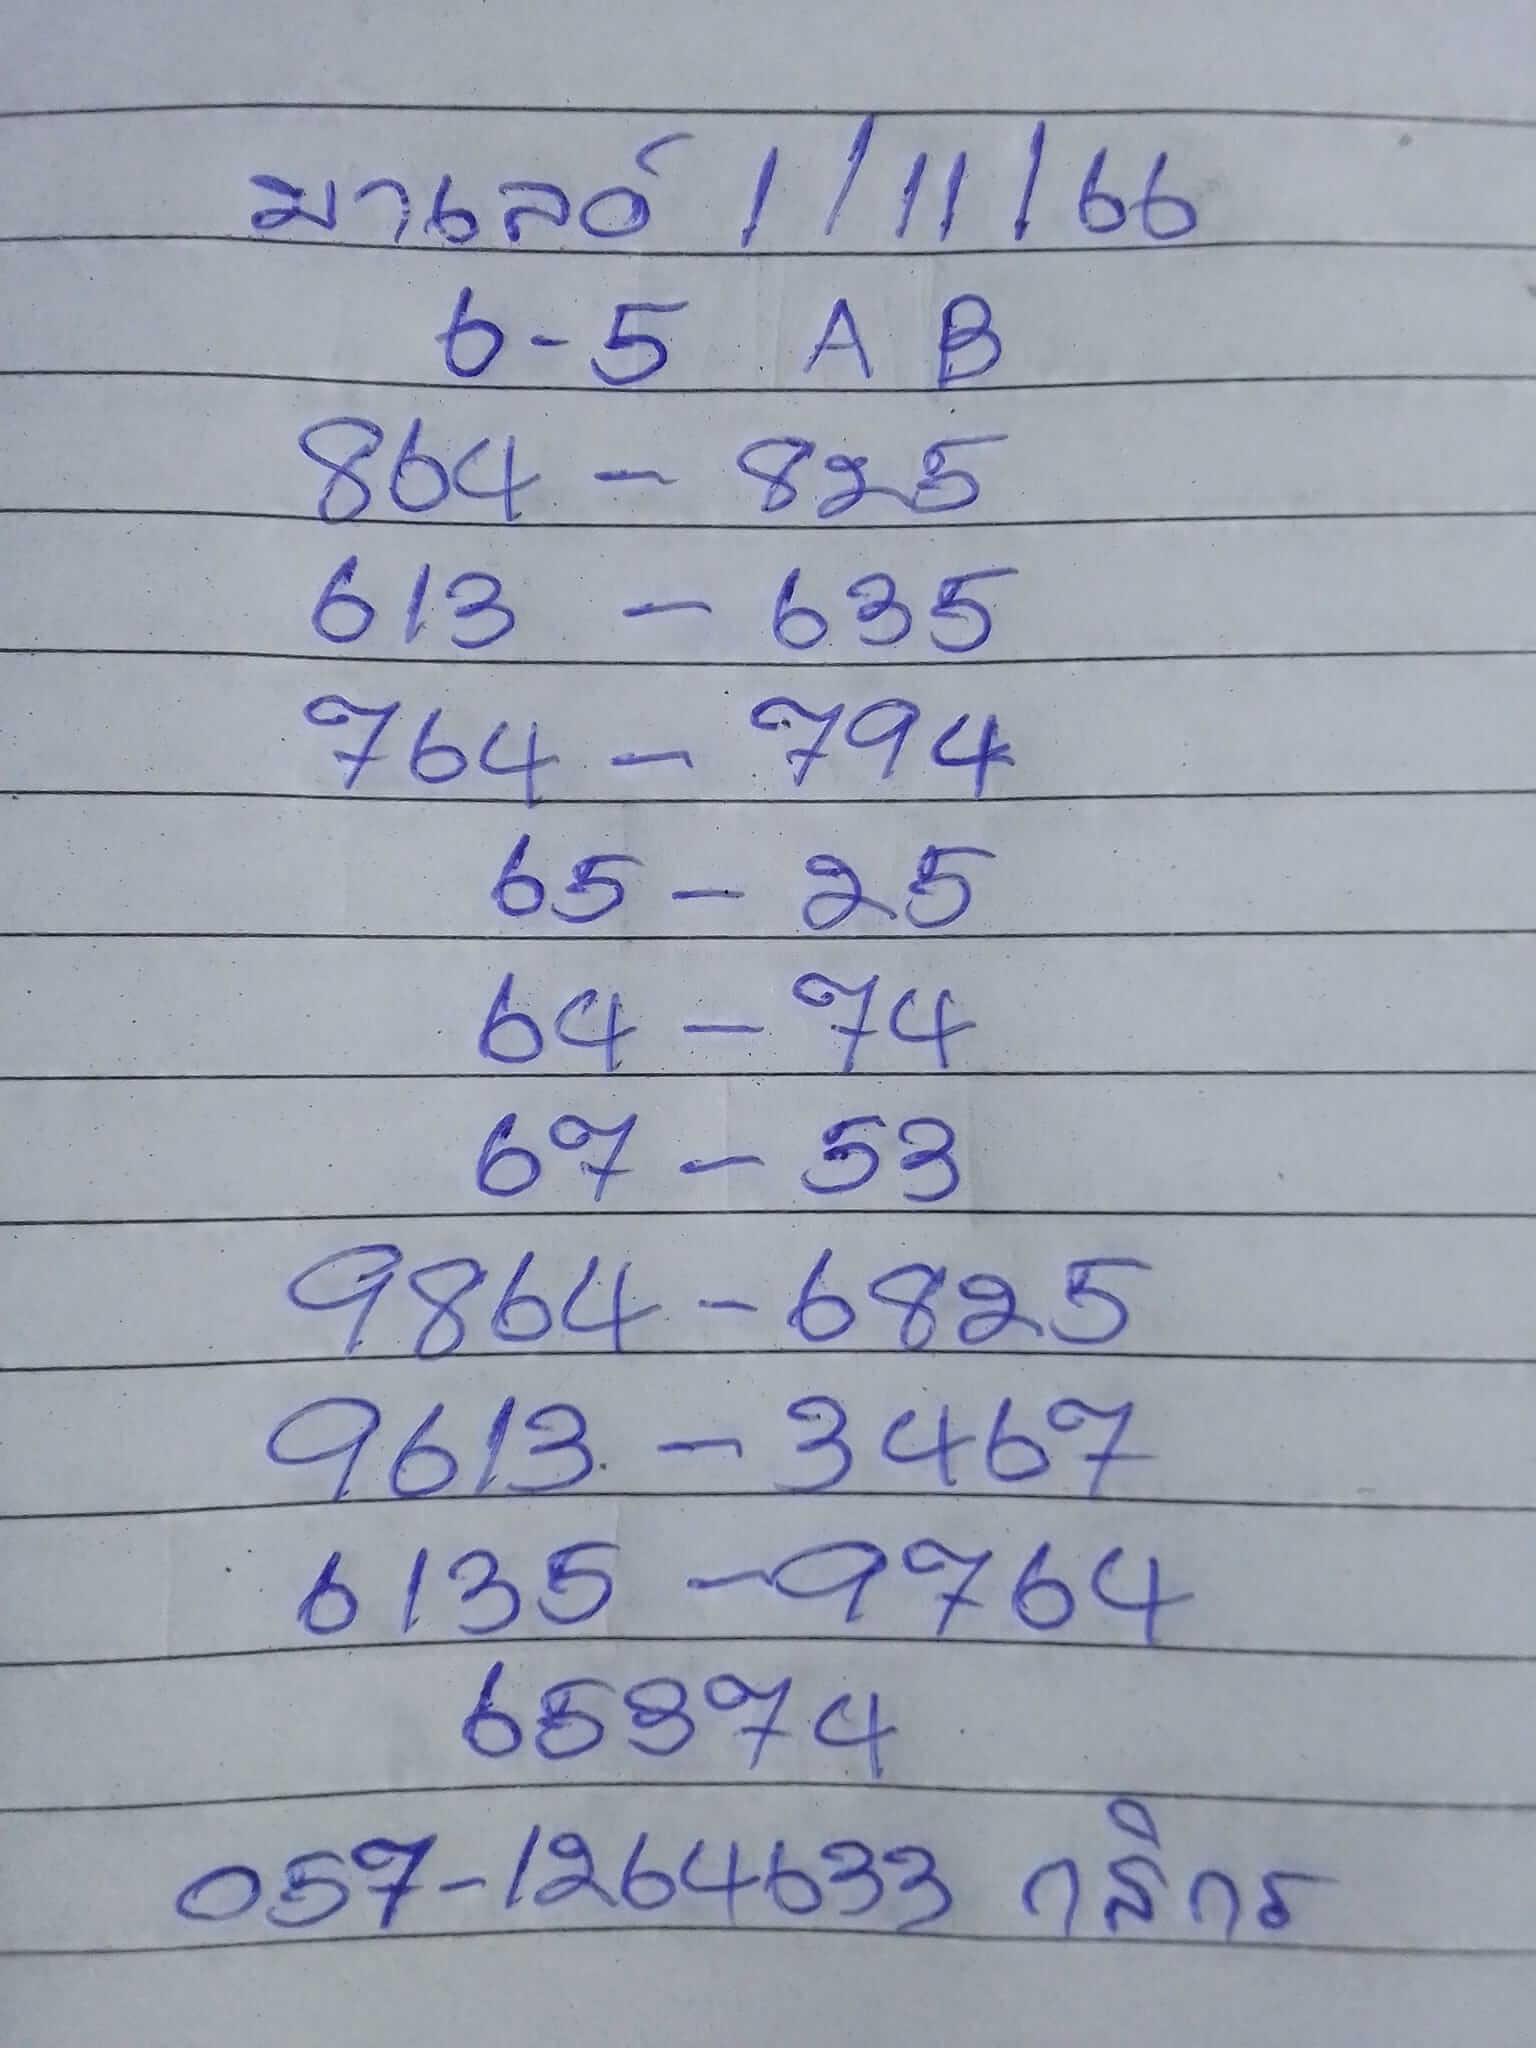 มาเลย์ 1/11/66
6-5 A B
864 - 825
613 - 635
764 - 794
65 - 25
64 - 74
67 - 53
9864 - 6825
9613 - 3467
6135 - 9764
65374
057-1264633 กสิกร